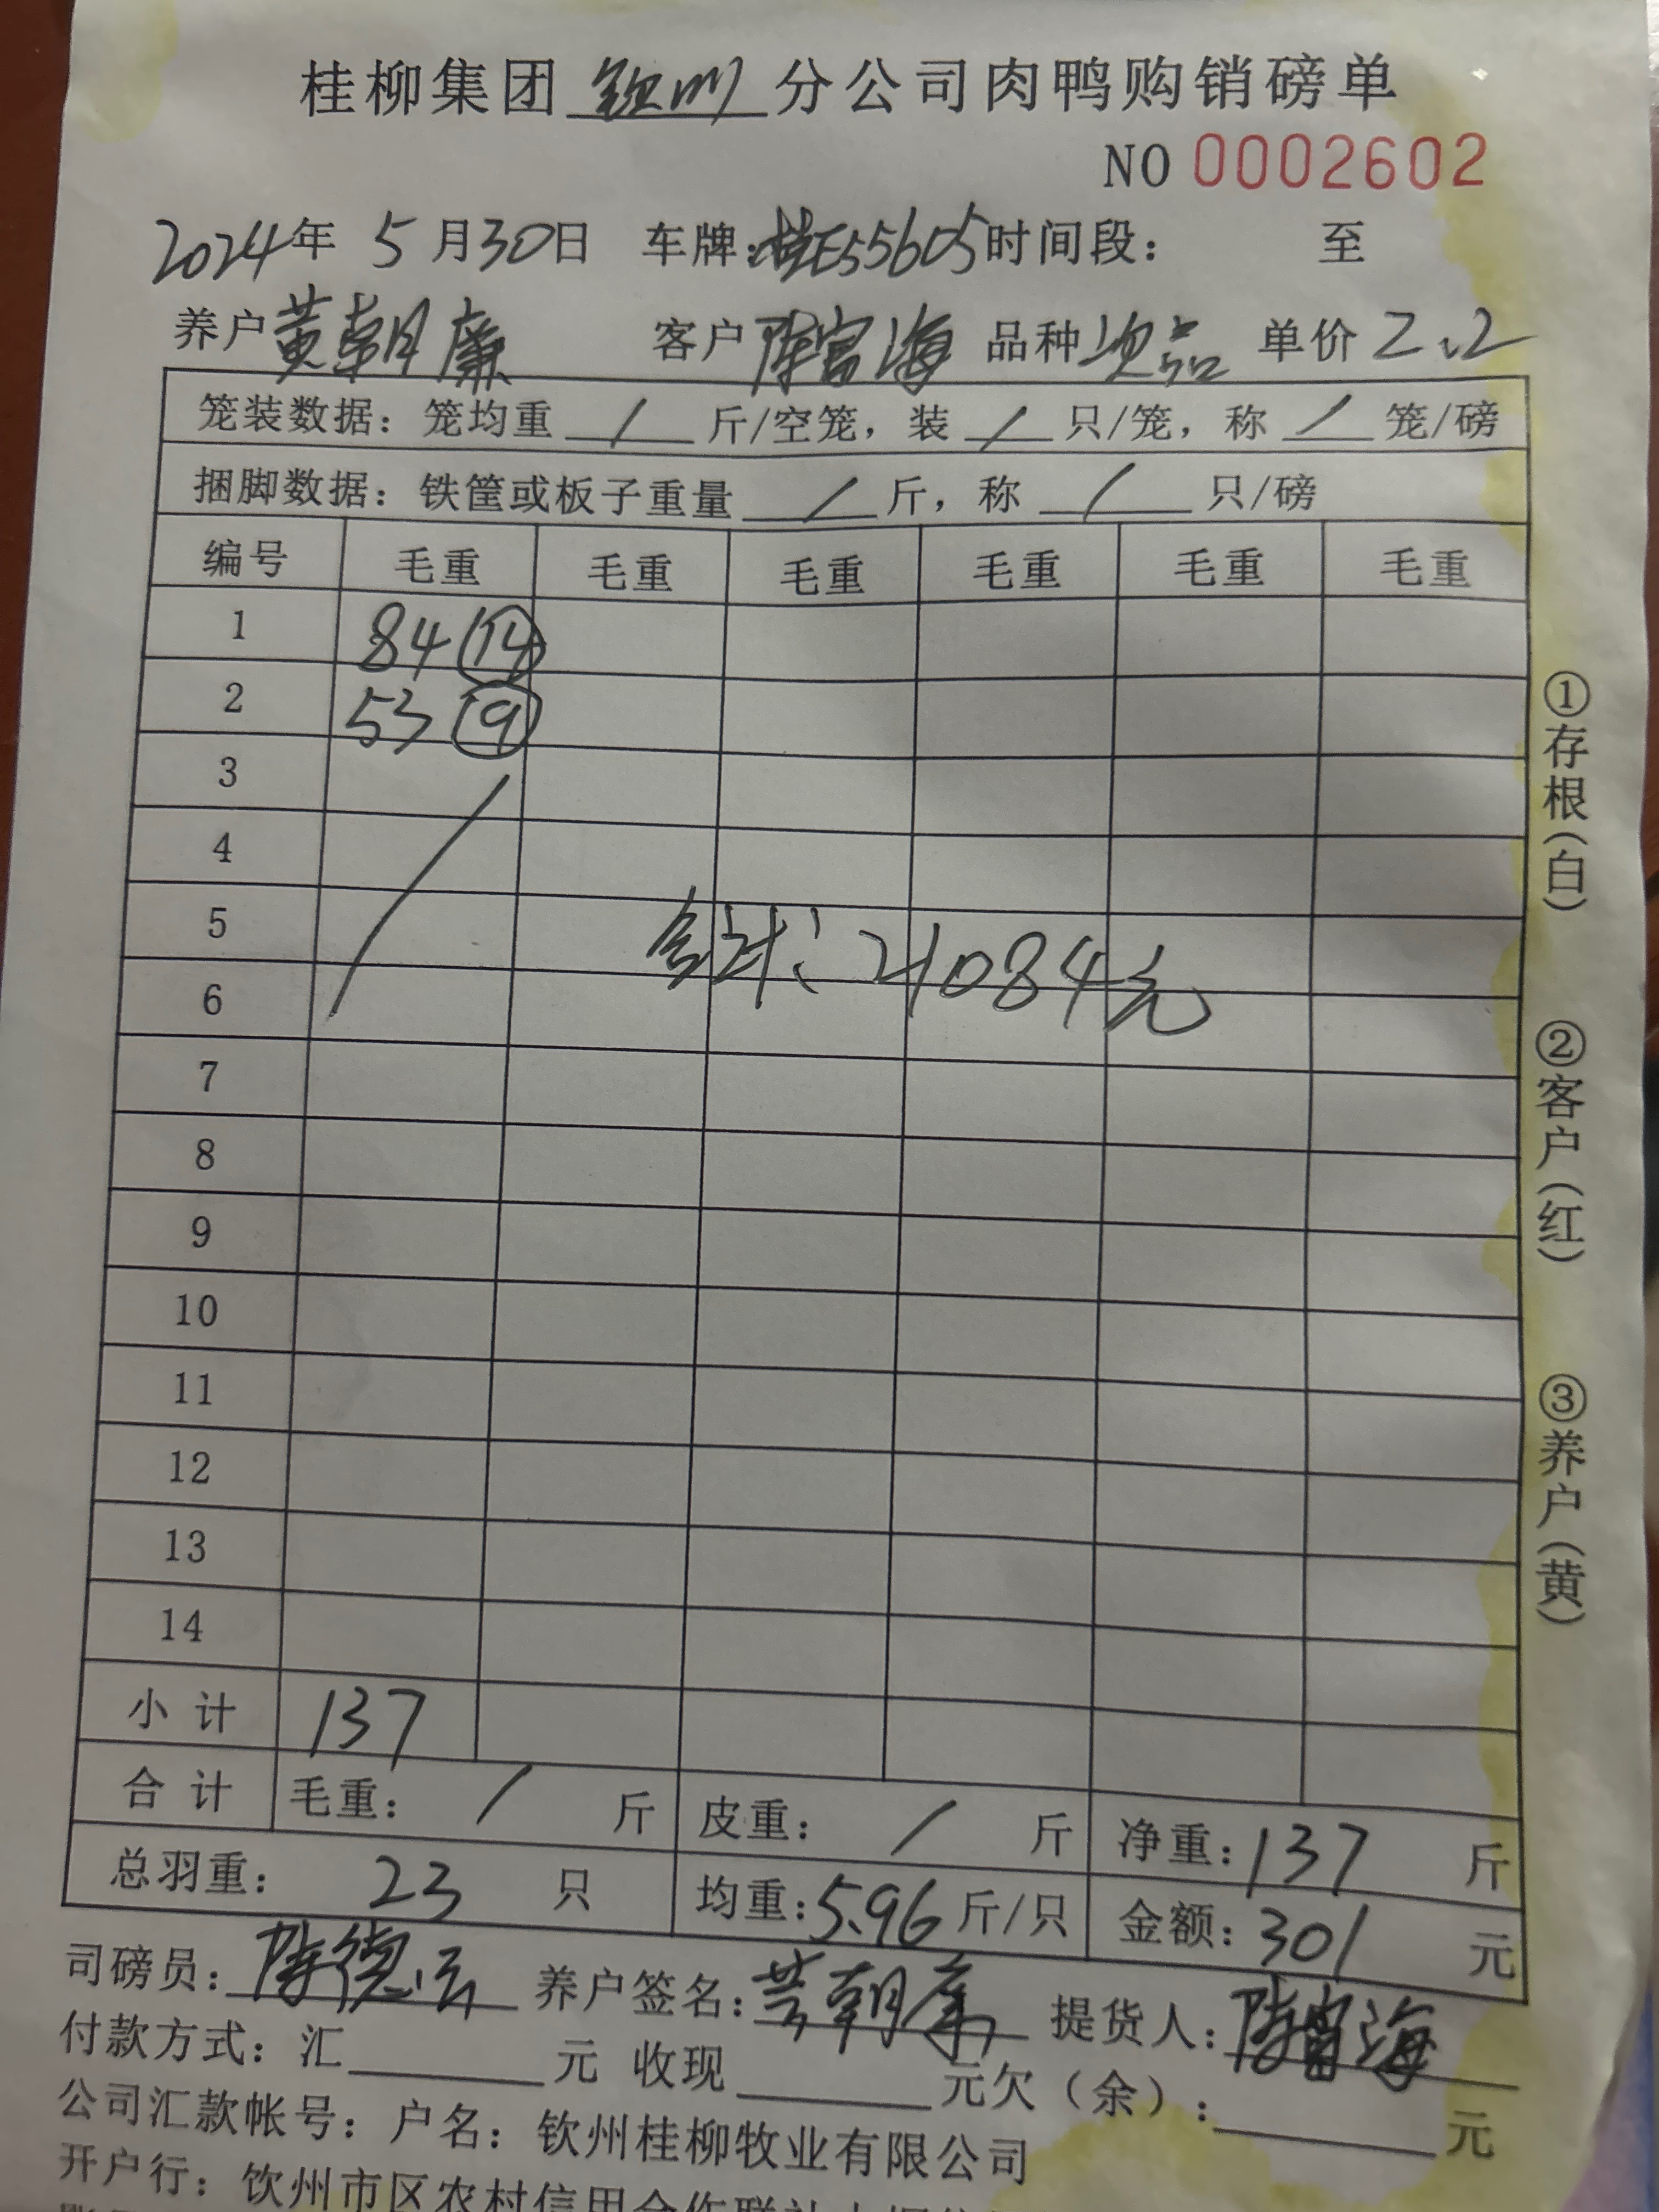 桂柳集团 钦州 分公司肉鸭购销磅单
NO 0002602
2024年 5月30日 车牌:桂E55605时间段: 至
养户 黄朝廉 客户 陈富海 品种 次品 单价 2.2
笼装数据: 笼均重 / 斤/空笼, 装 / 只/笼, 称 / 笼/磅
捆脚数据: 铁筐或板子重量 / 斤, 称 / 只/磅
编号 毛重 毛重 毛重 毛重 毛重 毛重
1 84 (14)
2 53 (9)
3
4
5
合计: 21084元
6
7
8
9
10
11
12
13
14
小计 137
合计 毛重: / 斤 皮重: / 斤 净重: 137 斤
总羽重: 23 只 均重: 5.96 斤/只 金额: 301 元
司磅员: 陈德云 养户签名: 黄朝廉 提货人: 陈富海
付款方式: 汇 元 收现 元欠(余): 元
公司汇款帐号: 户名: 钦州桂柳牧业有限公司
开户行: 钦州市区农村信用合作联社
①存根(白) ②客户(红) ③养户(黄)